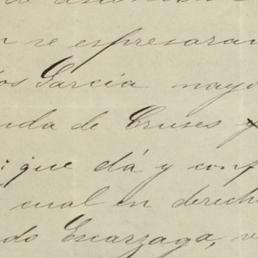 n se espresaran
os García mayo
nda de Cruses y
i que dá y conf
cual en derech
do Escarzaga, v